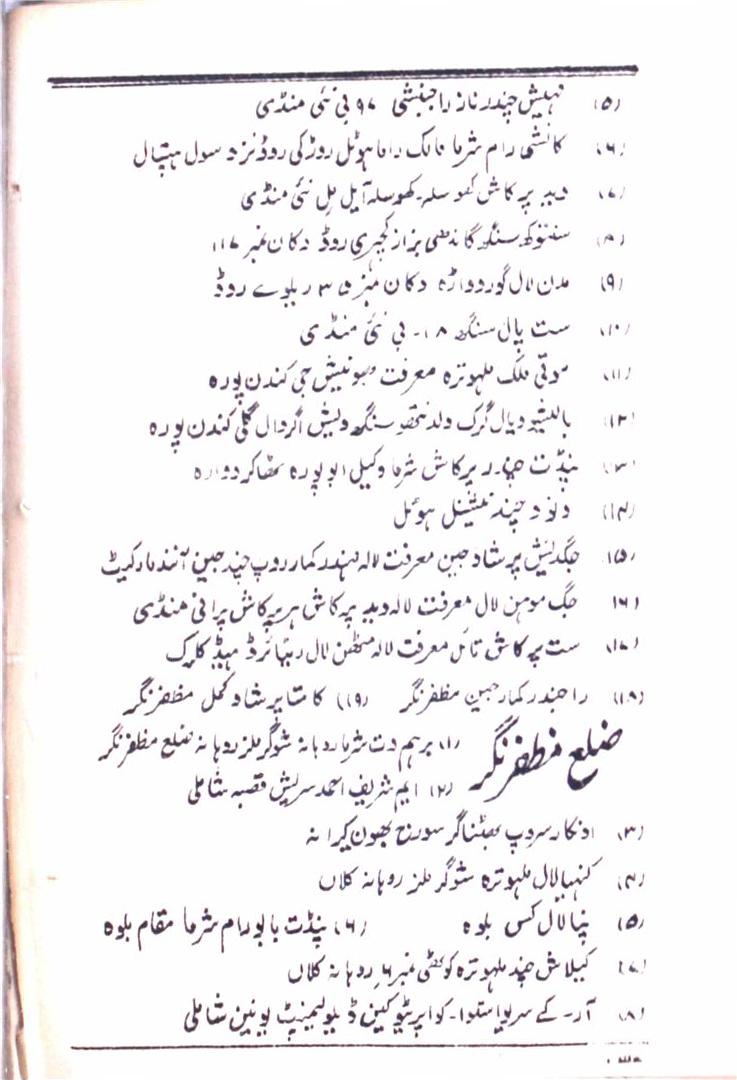 (۵) مہیش چندر ناز راجبنشی ۹۷ بی نئی منڈی
(۶) کانشی رام شرما مالک راما ہوٹل روڑکی روڈ نزد سول ہسپتال
(۷) دید پرکاش کھوسلہ۔ کھوسلہ آیل مل نئی منڈی
(۸) سنتوکھ سنگھ گاندھی بزاز کچہری روڈ دکان نمبر ۱۱۷
(۹) مدن لال گوردواڑہ دکان نمبر ۳۵ ریلوے روڈ
(۱۰) ست پال سنگھ ۱۸۔ بی نئی منڈی
(۱۱) موتی ملک ملہوترہ معرفت جی کندن پورہ
(۱۲) بالشیو دیال گرگ ولد نتھو سنگھ ویش اگروال گلی کندن پورہ
(۱۳) پنڈت چندر پرکاش شرما وکیل ابوپورہ ٹھاکر دوارہ
(۱۴) ونود چند نیشنل ہوٹل
(۱۵) جگدیش پرشاد جین معرفت لالہ مہندر کمار روپ چندر جین آنند مارکیٹ
(۱۶) جگ موہن لال معرفت لالہ دید پرکاش ہریرکاش پرانی منڈی
(۱۷) ست پرکاش تائل معرفت لالہ مٹھن لال ریٹائرڈ ہیڈ کلرک
(۱۸) راجندر کمار جین مظفرنگر (۱۹) کامتا پرشاد کمل مظفرنگر
ضلع مظفرنگر
(۱) برہم دت شرما روہانہ شوگر ملز روہانہ ضلع مظفرنگر
(۲) ایم شریف احمد سریش قصبہ شاملی
(۳) اونکار سروپ بھٹناگر سورج بھون کیرانہ
(۴) کنہیا لال ملہوترہ شوگر ملز روہانہ کلاں
(۵) پنا لال کس بلوہ (۶) پنڈت بابو رام شرما مقام بلوہ
(۷) کیلاش چند ملہوترہ کوٹھی نمبر ۶ روہانہ کلاں
(۸) آر۔ کے سریواستوا۔ کواپریٹو کین ڈیولپمینٹ یونین شاملی